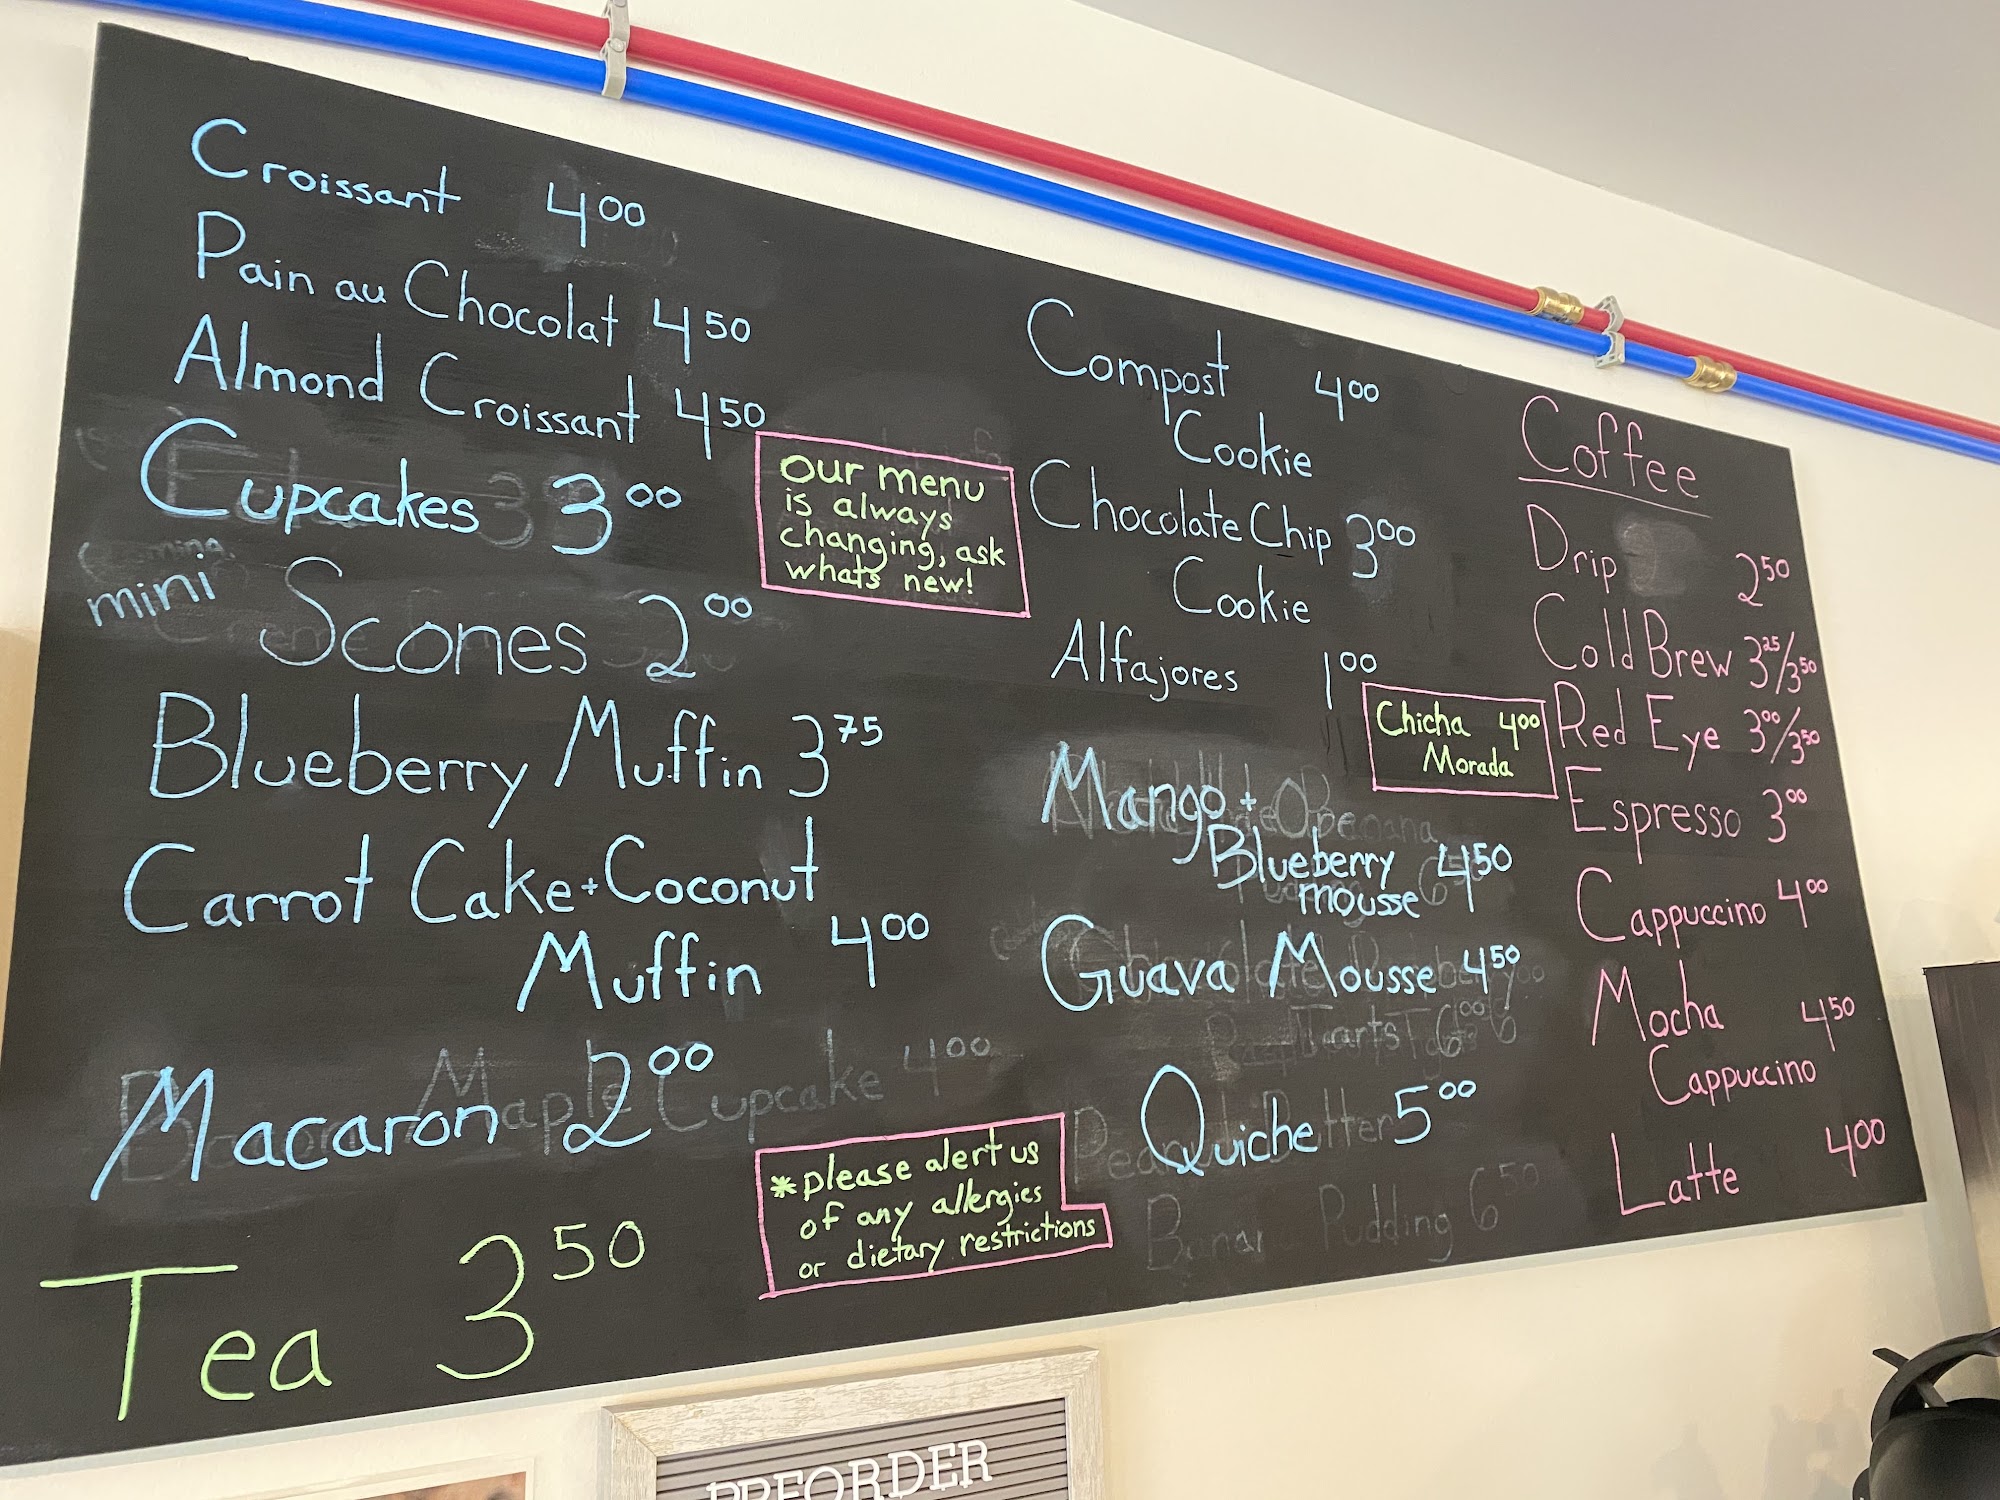 Croissant 4.00
Pain au Chocolat 4.50
Almond Croissant 4.50
Cupcakes 3.00
mini Scones 2.00
Blueberry Muffin 3.75
Carrot Cake + Coconut
Muffin 4.00
Macaron 2.00
Maple Cupcake 4.00
Tea 3.50
our menu
is always
changing, ask
whats new!
*please alert us
of any allergies
or dietary restrictions
Compost 4.00
Cookie
Chocolate Chip 3.00
Cookie
Alfajores 1.00
Chicha 4.00
Morada
Mango +
Blueberry 4.50
mousse
Guava Mousse 4.50
Quiche 5.00
Pudding 6.50
Coffee
Drip 2.50
Cold Brew 3.25/3.50
Red Eye 3.00/3.50
Espresso 3.00
Cappuccino 4.00
Mocha 4.50
Cappuccino
Latte 4.00
PREORDER